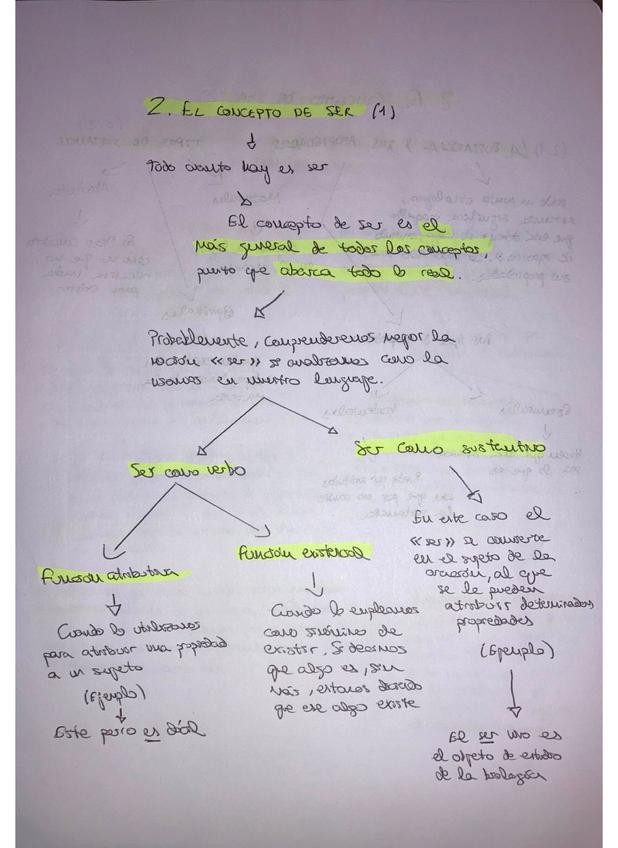 2. EL CONCEPTO DE SER (1)
Todo cuanto hay es ser
El concepto de ser es el
más general de todos los conceptos,
puesto que abarca todo lo real.
Probablemente, comprenderemos mejor la
noción «ser» si analizamos como la
usamos en nuestro lenguaje.
Ser como verbo
Ser como sustantivo
Función atributiva
Cuando lo utilizamos
para atribuir una propiedad
a un sujeto
(Ejemplo)
Este perro es dócil
Función existencial
Cuando lo empleamos
como sinónimo de
existir. Si decimos
que algo es, sin
más, estamos diciendo
que ese algo existe
En este caso el
«ser» se convierte
en el sujeto de la
oración, al que
se le pueden
atribuir determinadas
propiedades
(Ejemplo)
El ser vivo es
el objeto de estudio
de la biología